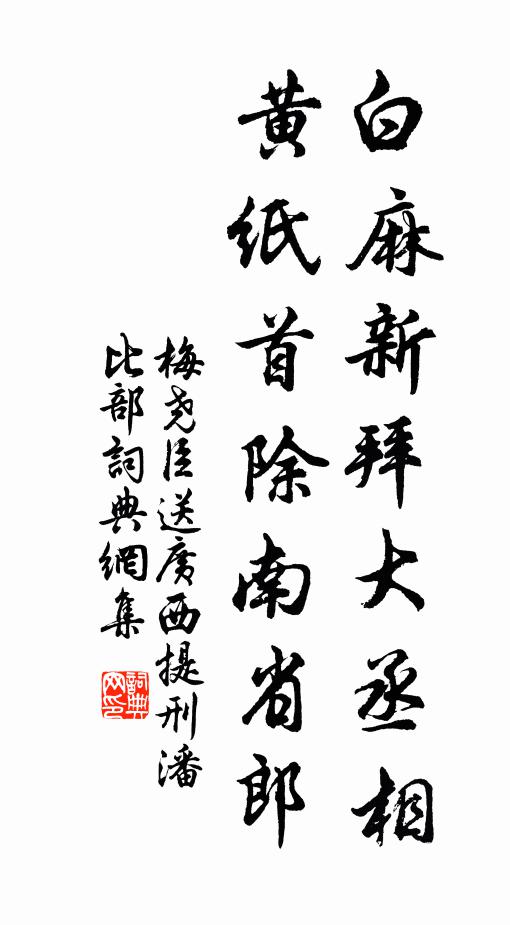 白麻新拜大丞相
黃紙首除南省郎
梅堯臣送廣西提刑潘
比部詞典網集
詞典
网印